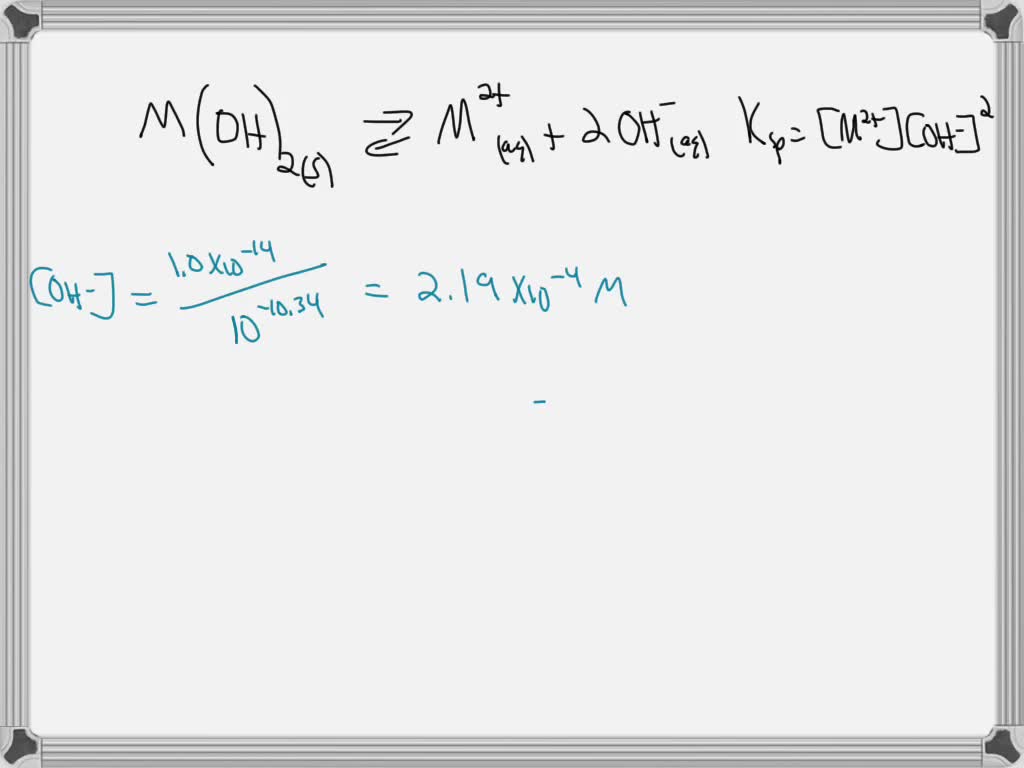 M(OH)₂(s) ⇄ M²⁺(aq) + 2OH⁻(aq) Ksp = [M²⁺][OH⁻]²
[OH-] = 1.0×10⁻¹⁴ / 10⁻¹⁰·³⁴ = 2.19 ×10⁻⁴ M
-